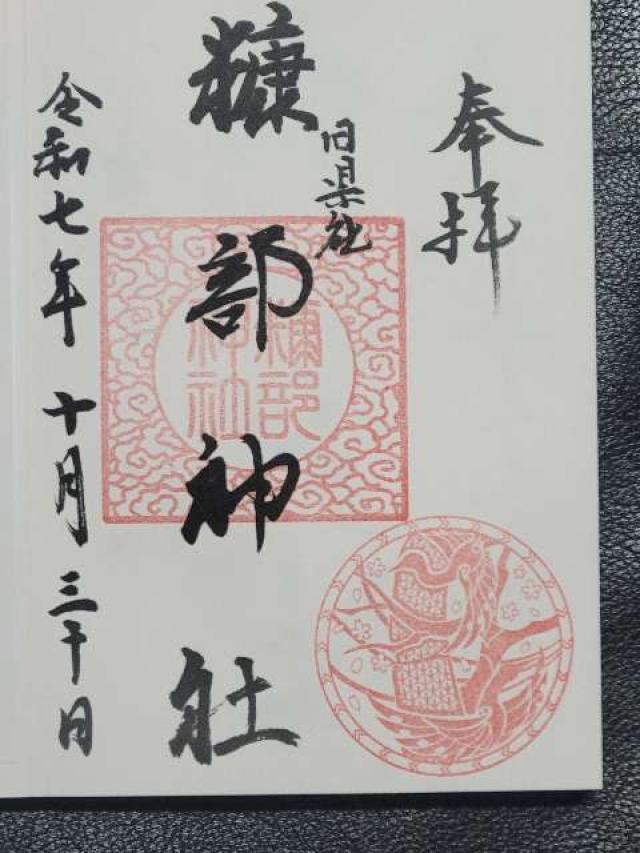 奉拝
旧県社
糠部神社
糠部
神社
令和七年十月三十日